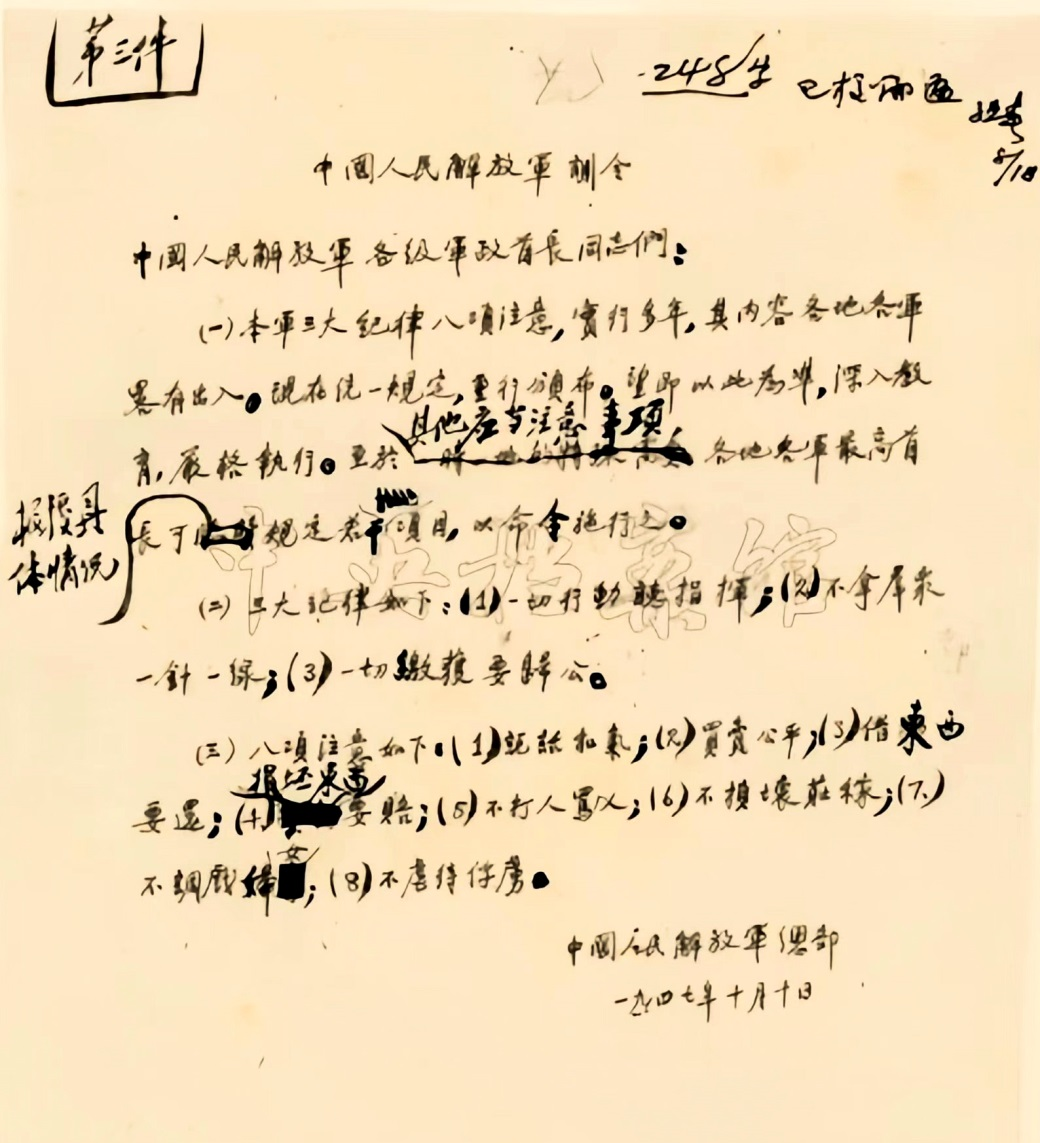 第三件
248字
已校
8/18
中國人民解放軍訓令
中國人民解放軍各級軍政首長同志們:
(一)本軍三大紀律八項注意,實行多年,其内容各地各軍
畧有出入。現在統一規定,重行頒布。望即以此為準,深入教
其他应当注意事项,
育,嚴格執行。至於 各地各軍最高首
根据具体情况
長可 規定若干項目,以命令施行之。
(二)三大紀律如下:(1)一切行動聽指揮;(2)不拿羣衆
一針一線;(3)一切繳獲要歸公。
(三)八項注意如下:(1)說話和氣;(2)買賣公平;(3)借東西
损坏東西
要還;(4) 要賠;(5)不打人罵人;(6)不損壞莊稼;(7)
女
不調戲婦 ;(8)不虐待俘虜。
中國人民解放軍總部
一九四七年十月十日
中央档案館